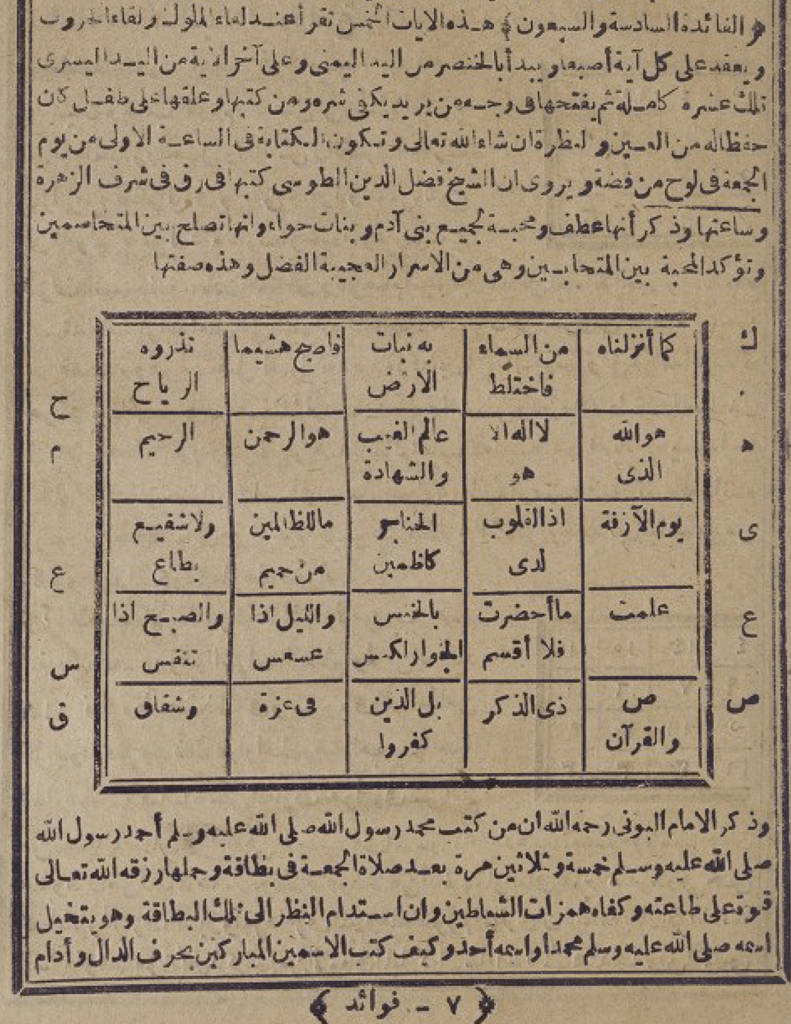 ﴿الفائدة السادسة والسبعون﴾ هذه الايات الخمس تقرأ عند لقاء الملوك ولقاء الحروب
ويعقد على كل آية أصبعا ويبدأ بالخنصر من اليد اليمنى وعلى آخر اية من اليد اليسرى
تلك عشرة كاملة ثم يفتحها فى وجه من يريد يكفى شره ومن كتبها وعلقها على طفل كان
حفظا له من العين والنظرة ان شاء الله تعالى وتكون الكتابة فى الساعة الاولى من يوم
الجمعة فى لوح من فضة ويروى ان الشيخ فضل الدين الطوسى كتبها فى رق فى شرف الزهرة
وساعتها وذكر أنها عطف ومحبة لجميع بنى آدم وبنات حواء وانها تصلح بين المتخاصمين
وتؤكد المحبة بين المتحابين وهى من الاسرار العجيبة الفضل وهذه صفتها
ك كما أنزلناه من السماء فاختلط به نبات الارض فاصبح هشيما تذروه الرياح ح
ه هو الله الذى لا اله الا هو عالم الغيب والشهادة هو الرحمن الرحيم م
ى يوم الآزفة اذ القلوب لدى الحناجر كاظمين ما للظالمين من حميم ولا شفيع يطاع ع
ع علمت ما أحضرت فلا أقسم بالخنس الجوار الكنس والليل اذا عسعس والصبح اذا تنفس س
ص ص والقرآن ذى الذكر بل الذين كفروا فى عزة وشقاق ق
وذكر الامام البونى رحمه الله ان من كتب محمد رسول الله صلى الله عليه وسلم أحمد رسول الله
صلى الله عليه وسلم خمسة وثلاثين مرة بعد صلاة الجمعة فى بطاقة وحملها رزقه الله تعالى
قوة على طاعته وكفاه همزات الشياطين وان استدام النظر الى تلك البطاقة وهو يتخيل
اسمه صلى الله عليه وسلم محمد أو اسمه أحمد وكيف كتب الاسمين المباركين بحرف الدال وأدام
﴿٧ - فوائد﴾